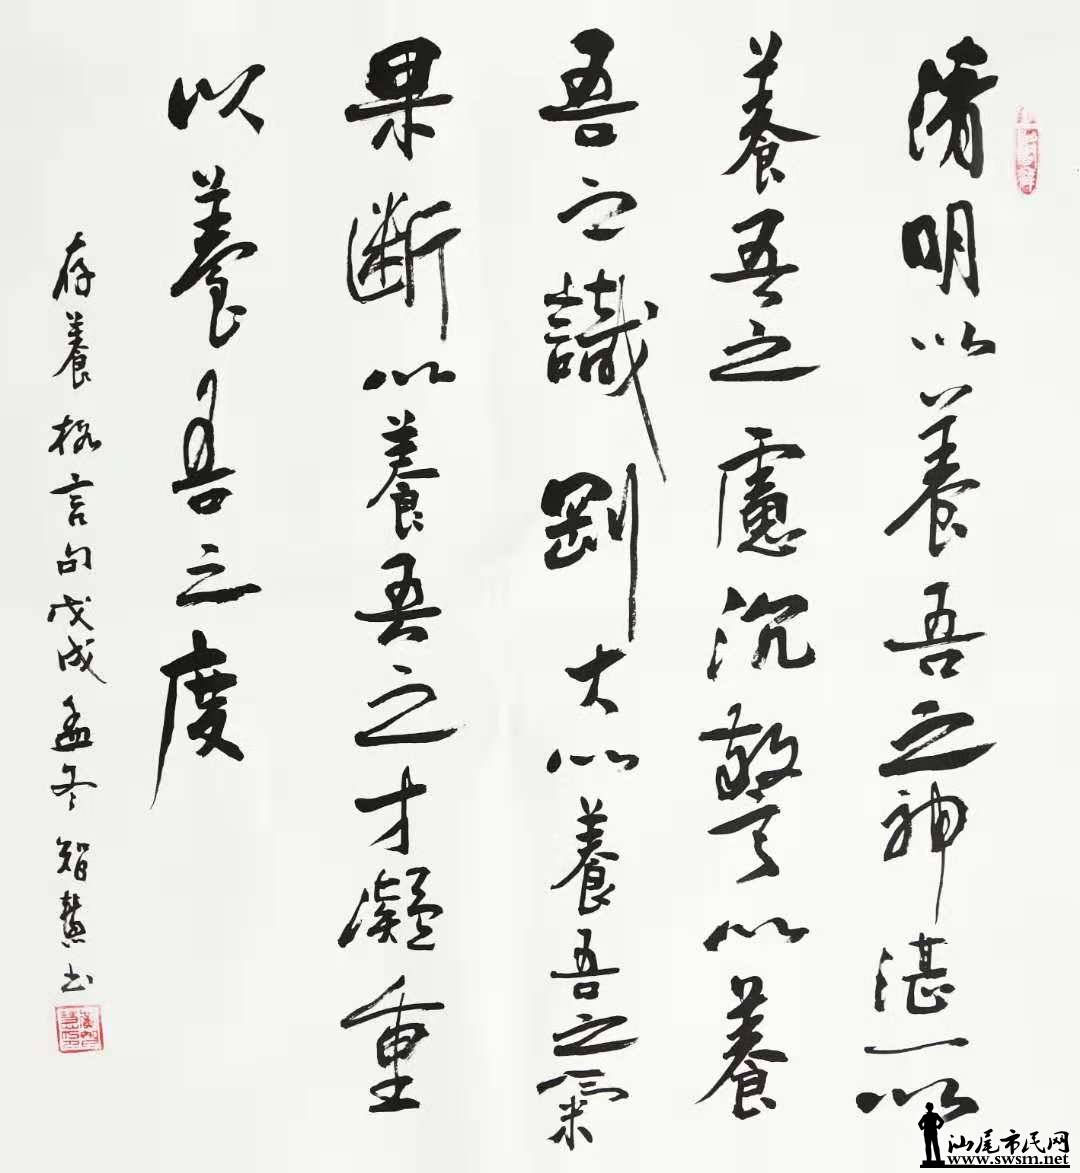 清明以養吾之神湛一以
養吾之慮沉警以養
吾之識剛大以養吾之氣
果斷以養吾之才凝重
以養吾之度
存養格言句戊戌孟冬智慧书
汕尾市民网
www.swsm.net